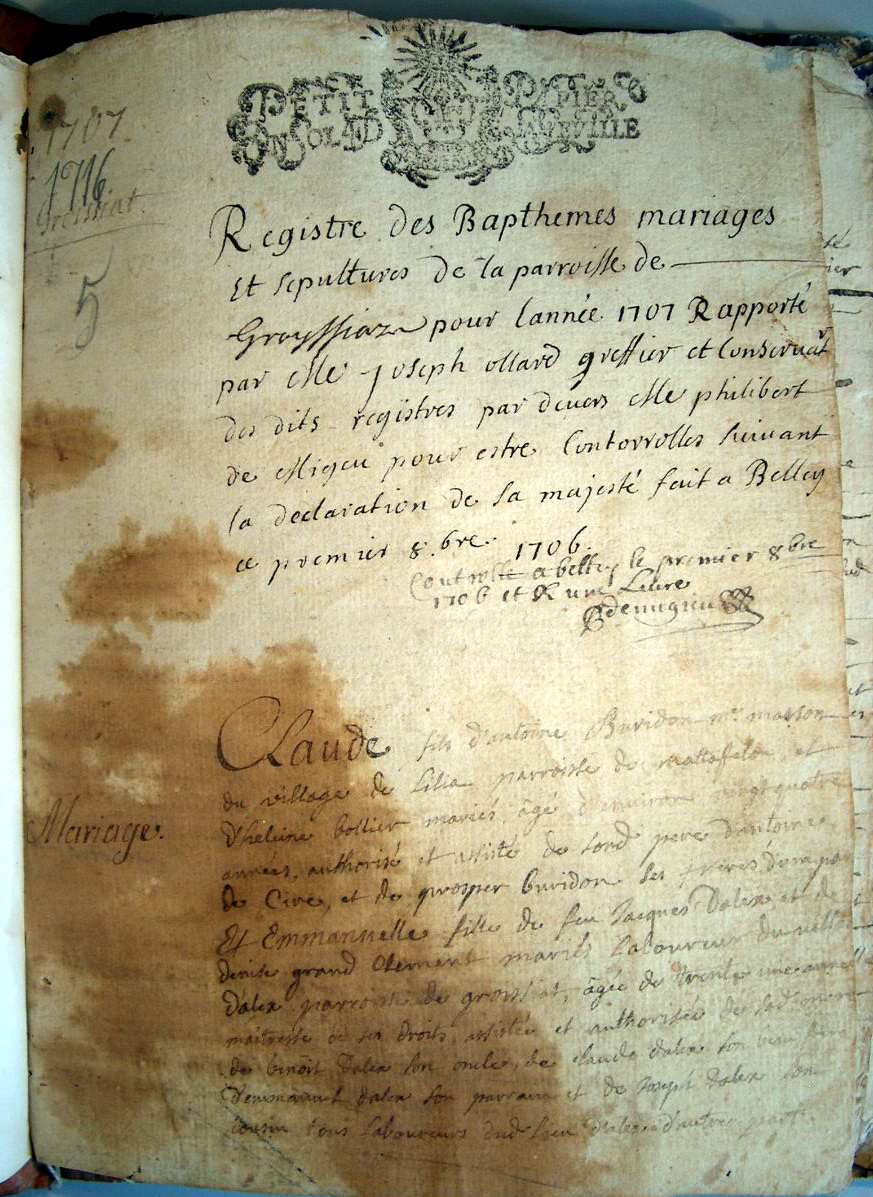 PETIT PAPIER
UN SOL LAD
1707
1716
Greissiat
5
Registre des Bapthemes mariages
Et sepultures de la parroisse de
Groyssiaz pour lannée 1707 Rapporté
par Me Joseph ollard greffier et Conservatr
des dits registres par devers Me philibert
de Migieu pour estre Contorrolles suivant
la declaration de sa majesté fait a Belley
ce premier 8.bre 1706.
Controlle a belley le premier 8bre
1706 et R une Livre
Demigieu
Mariage.
Claude fils d'antoine Buridon me masson
du village de Lilia parroisse de mattafelon, et
d'heleine bollier mariés, âgé d'environ vingt quatre
années, authorisé et assisté de sond pere d'antoine
de Cire, et de prosper buridon ses freres d'une part
Et Emmanuelle fille de feu Jacques Dalex et de
denise grand Clement mariés Laboureur du village
Dalex parroisse de groissiat, âgée de trente une année
maitresse de ses droits, assistée et authorisée de
de benoit Dalex son oncle, de claude dalex son beau frere
D'emmanuel dalex son parrain et de Joseph dalex son
cousin tous laboureurs dud lieu d'alex d'autre part